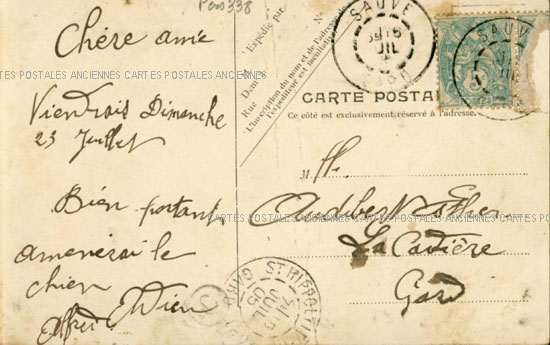 Pers 338
Chère amie
Viendrais Dimanche
23 Juillet
Bien portant,
amenerai le
chien
N°
Expédié par:
Dem
Rue
L'inscription du nom et de l'adresse de
l'expéditeur est facultative
SAUVE
JUIL
GARD
SAUVE
CARTE POSTALE
Ce côté est exclusivement réservé à l'adresse.
M
La Cadière
Gard
ST HIPPOLYTE
JUIL
05
GARD
CARTES POSTALES ANCIENNES CARTES POSTALES ANCIENNES CARTES POSTALES ANCIENNES
CARTES POSTALES ANCIENNES CARTES POSTALES ANCIENNES CARTES POSTALES ANCIENNES